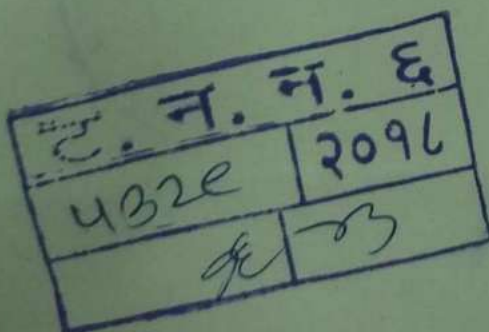 ट. न. न. ६
५३२९ २०१८